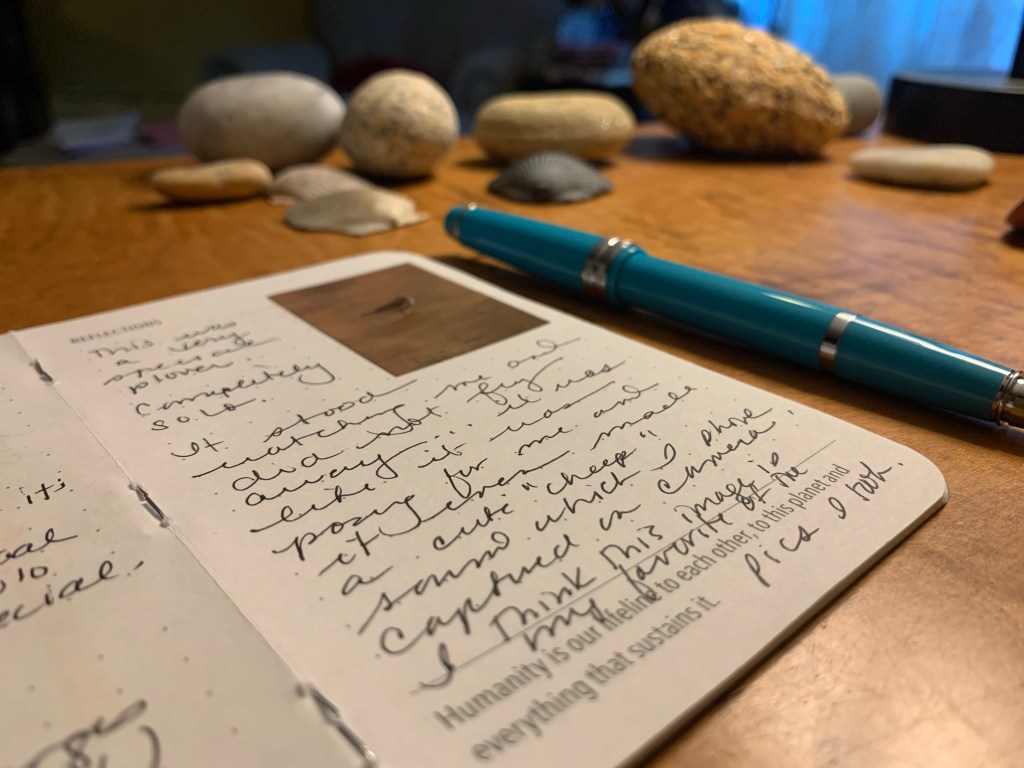 REFLECTIONS
This was
a very
special
plover.
Completely
solo.
It stood
watching me and
did not fly
away. it was
like it was
posing for me and
it even made
a cute "cheep"
sound which I phone
captured on camera.
I think this image is
my favorite of the
pics I took.
Humanity is our lifeline to each other, to this planet and
everything that sustains it.
its
olo
ecial.